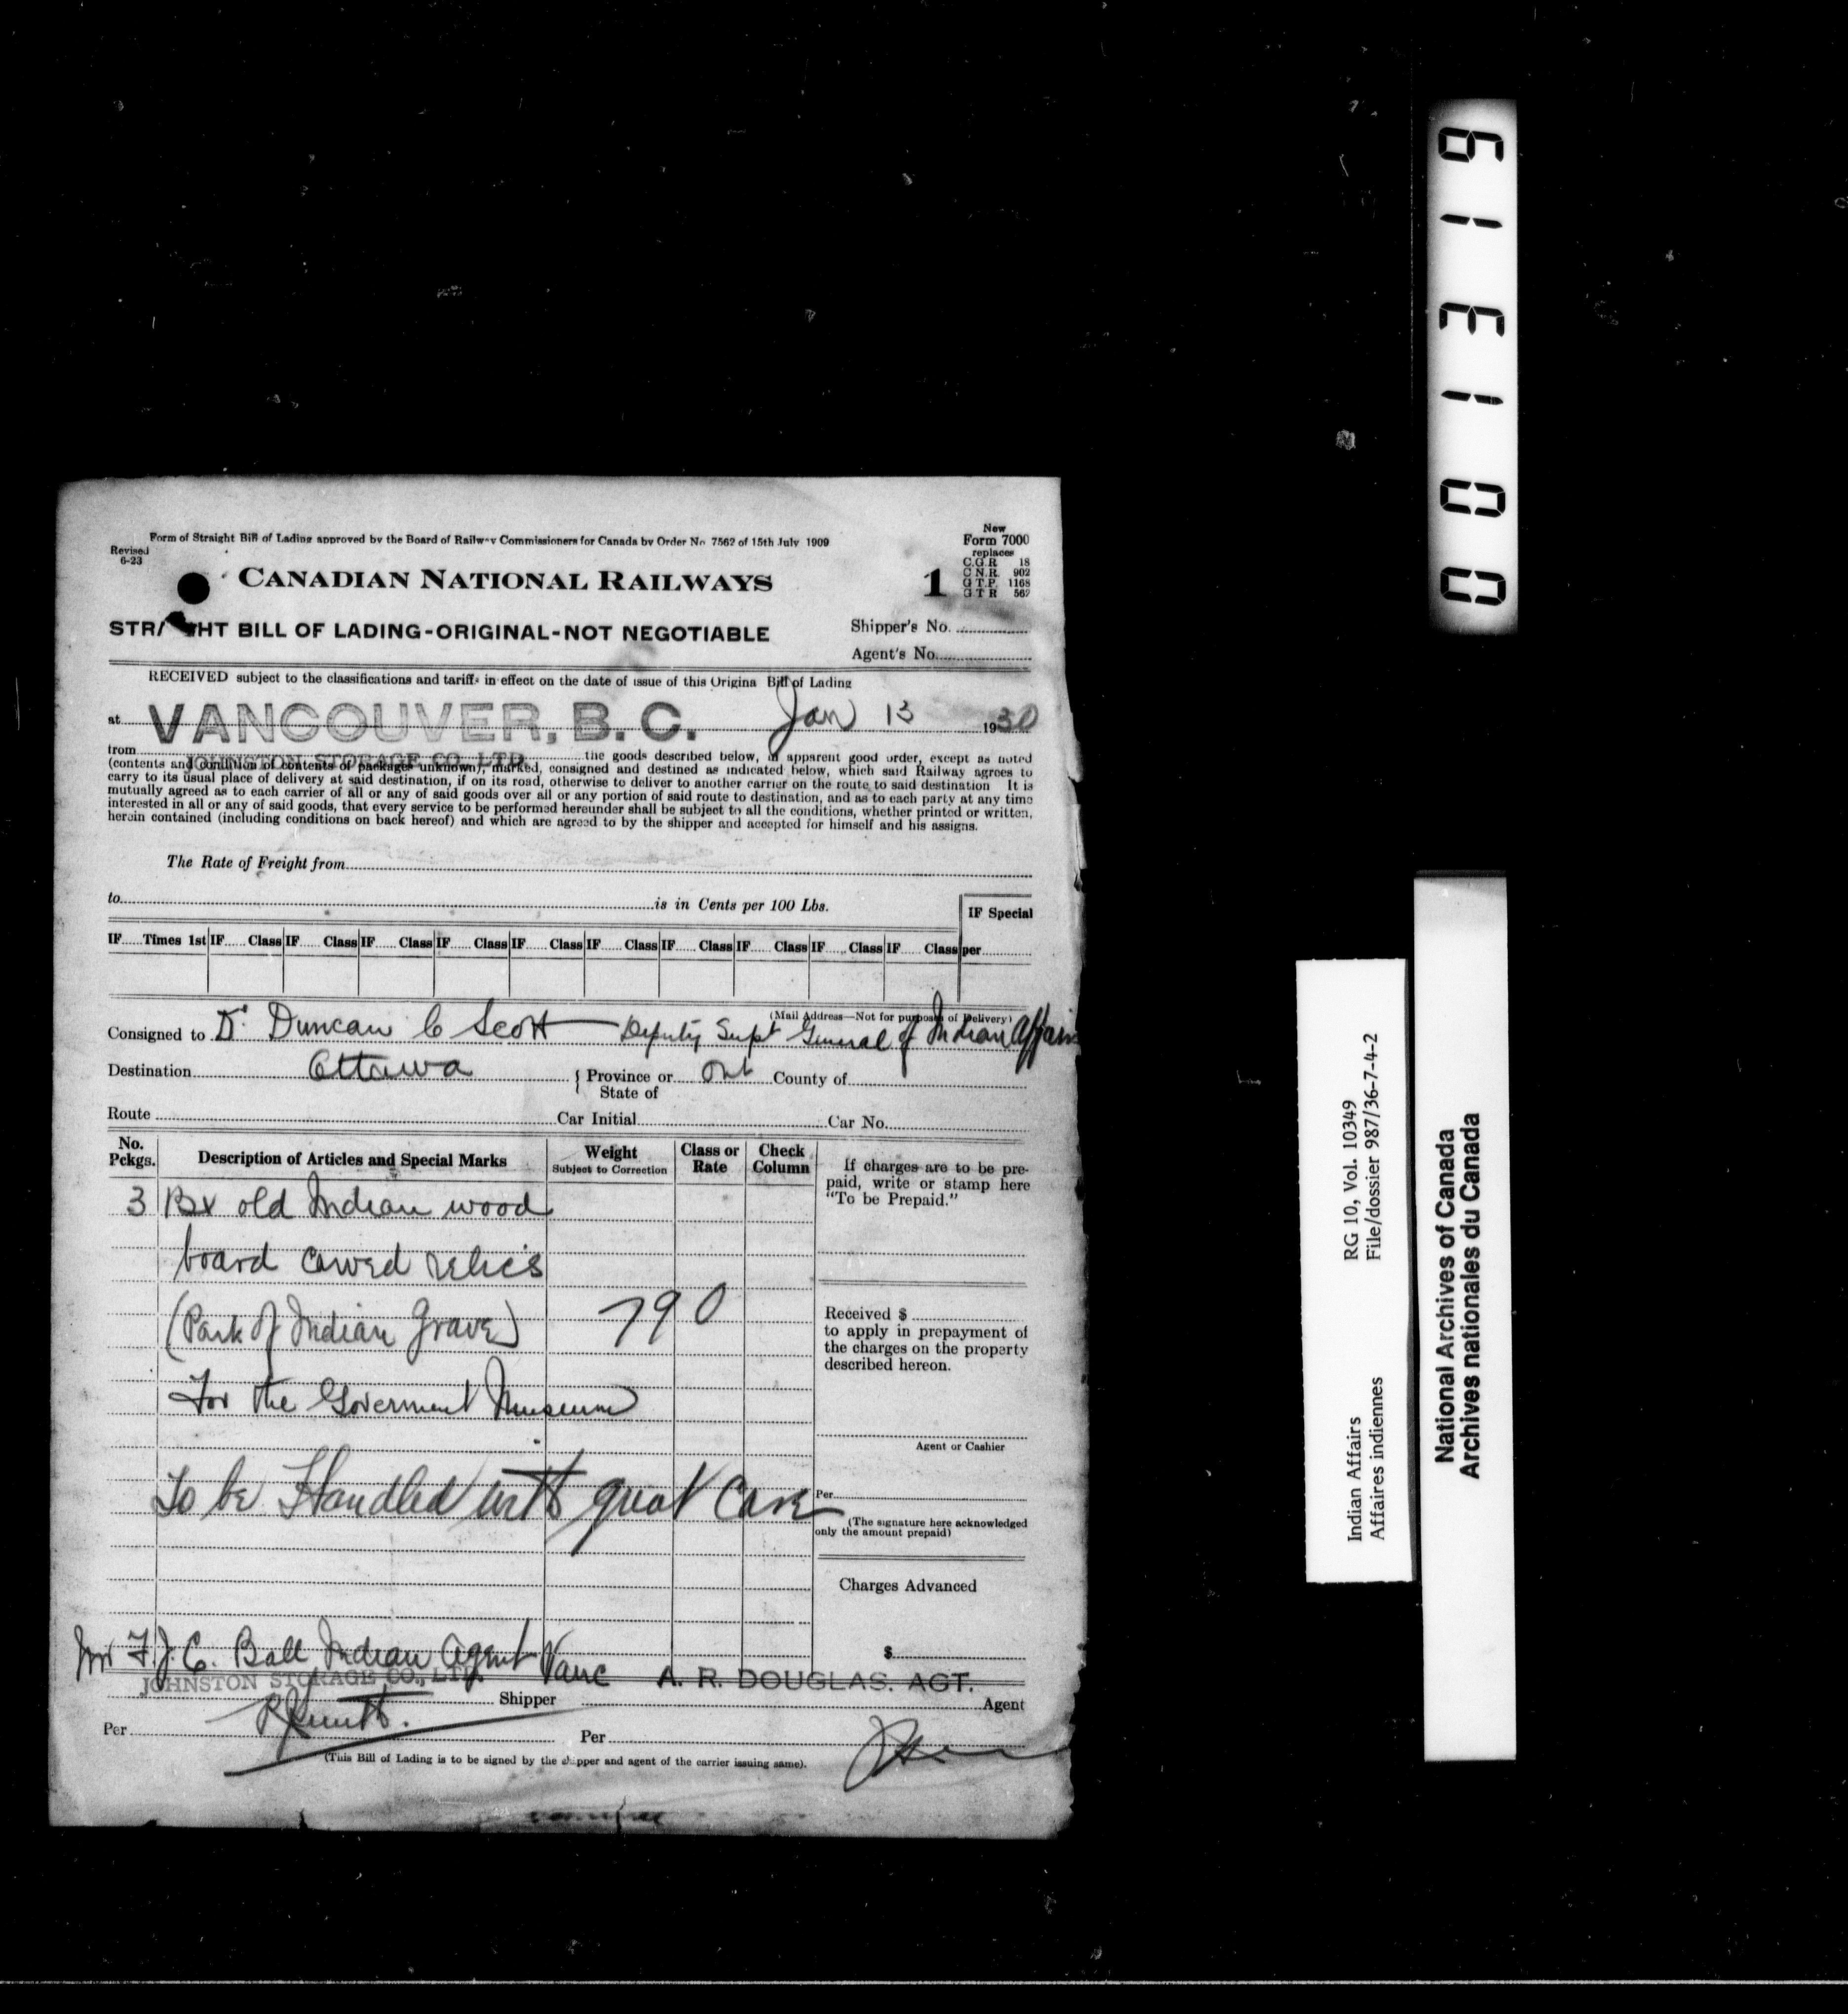 Form of Straight Bill of Lading approved by the Board of Railway Commissioners for Canada by Order No 7562 of 15th July 1909
Revised
6-23
New
Form 7000
replaces
C.G.R 18
C.N.R. 902
G.T.P. 1168
G T R 562
CANADIAN NATIONAL RAILWAYS
1
STRA HT BILL OF LADING-ORIGINAL-NOT NEGOTIABLE
Shipper's No.
Agent's No.
RECEIVED subject to the classifications and tariffs in effect on the date of issue of this Origina Bill of Lading
at VANCOUVER, B. C. Jan 13 1930
from JOHNSTON STORAGE CO. LTD. the goods described below, in apparent good order, except as noted
(contents and condition of contents of packages unknown), marked, consigned and destined as indicated below, which said Railway agrees to
carry to its usual place of delivery at said destination, if on its road, otherwise to deliver to another carrier on the route to said destination It is
mutually agreed as to each carrier of all or any of said goods over all or any portion of said route to destination, and as to each party at any time
interested in all or any of said goods, that every service to be performed hereunder shall be subject to all the conditions, whether printed or written,
herein contained (including conditions on back hereof) and which are agreed to by the shipper and accepted for himself and his assigns.
The Rate of Freight from
to is in Cents per 100 Lbs.
IF Special
IF Times 1st IF Class IF Class IF Class IF Class IF Class IF Class IF Class IF Class IF Class IF Class per
(Mail Address—Not for purposes of Delivery)
Consigned to Dr Duncan C Scott — Deputy Supt General of Indian Affairs
Destination Ottawa { Province or Ont County of
State of
Route Car Initial Car No.
No. Pckgs. Description of Articles and Special Marks Weight Subject to Correction Class or Rate Check Column
3 Bx old Indian wood
board carved relics
(Park of Indian Grave) 790
For the Goverment Museum
To be Handled with great Care
If charges are to be pre-
paid, write or stamp here
"To be Prepaid."
Received $
to apply in prepayment of
the charges on the property
described hereon.
Agent or Cashier
Per
(The signature here acknowledged
only the amount prepaid)
Charges Advanced
$
Mr F.J.C. Ball Indian Agent Vanc
JOHNSTON STORAGE CO., LTD. A. R. DOUGLAS. AGT.
Shipper Agent
Per Per
(This Bill of Lading is to be signed by the shipper and agent of the carrier issuing same).
001319
Indian Affairs RG 10, Vol. 10349
Affaires indiennes File/dossier 987/36-7-4-2
National Archives of Canada
Archives nationales du Canada